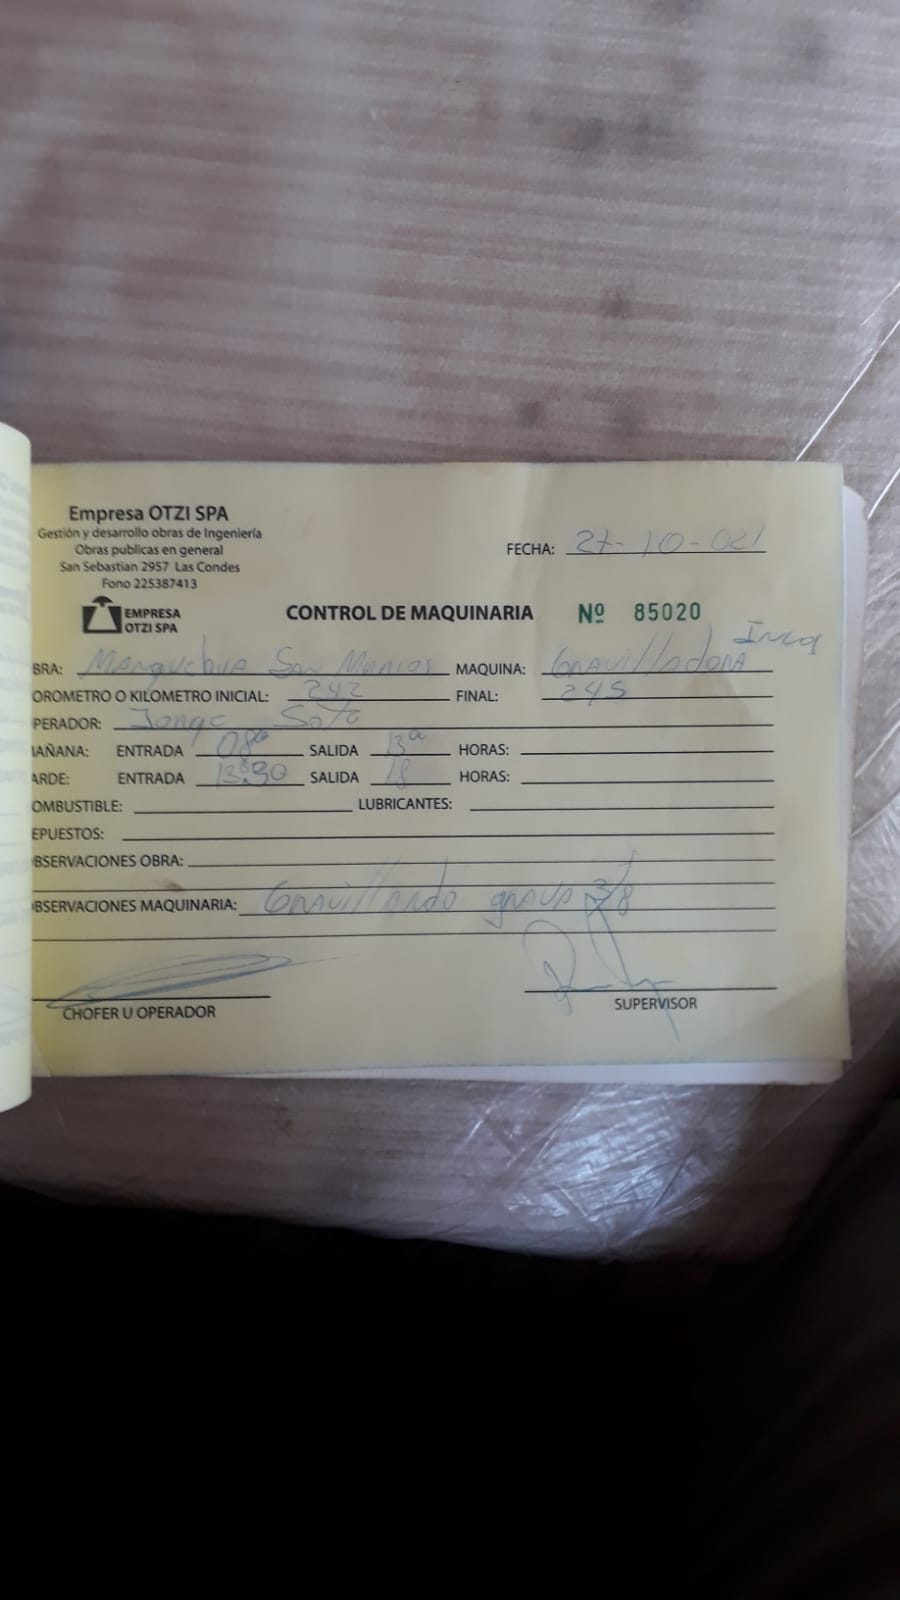 Empresa OTZI SPA
Gestión y desarrollo obras de Ingeniería
Obras publicas en general
San Sebastian 2957 Las Condes
Fono 225387413
FECHA: 27-10-021
EMPRESA
OTZI SPA
CONTROL DE MAQUINARIA Nº 85020
BRA: San Marcos MAQUINA: Gravilladora
OROMETRO O KILOMETRO INICIAL: 242 FINAL: 245
PERADOR: Jorge Soto
MAÑANA: ENTRADA 08 SALIDA 13 HORAS:
ARDE: ENTRADA 13:30 SALIDA 18 HORAS:
OMBUSTIBLE: LUBRICANTES:
EPUESTOS:
BSERVACIONES OBRA:
BSERVACIONES MAQUINARIA: Gravillando grava 3/8
CHOFER U OPERADOR
SUPERVISOR